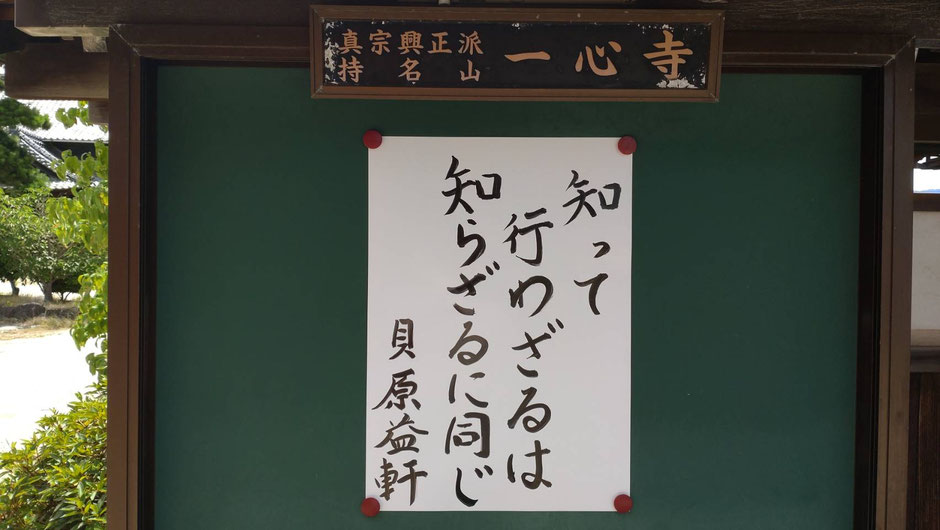 真宗興正派
持名山
一心寺
知って
行わざるは
知らざるに同じ
貝原益軒